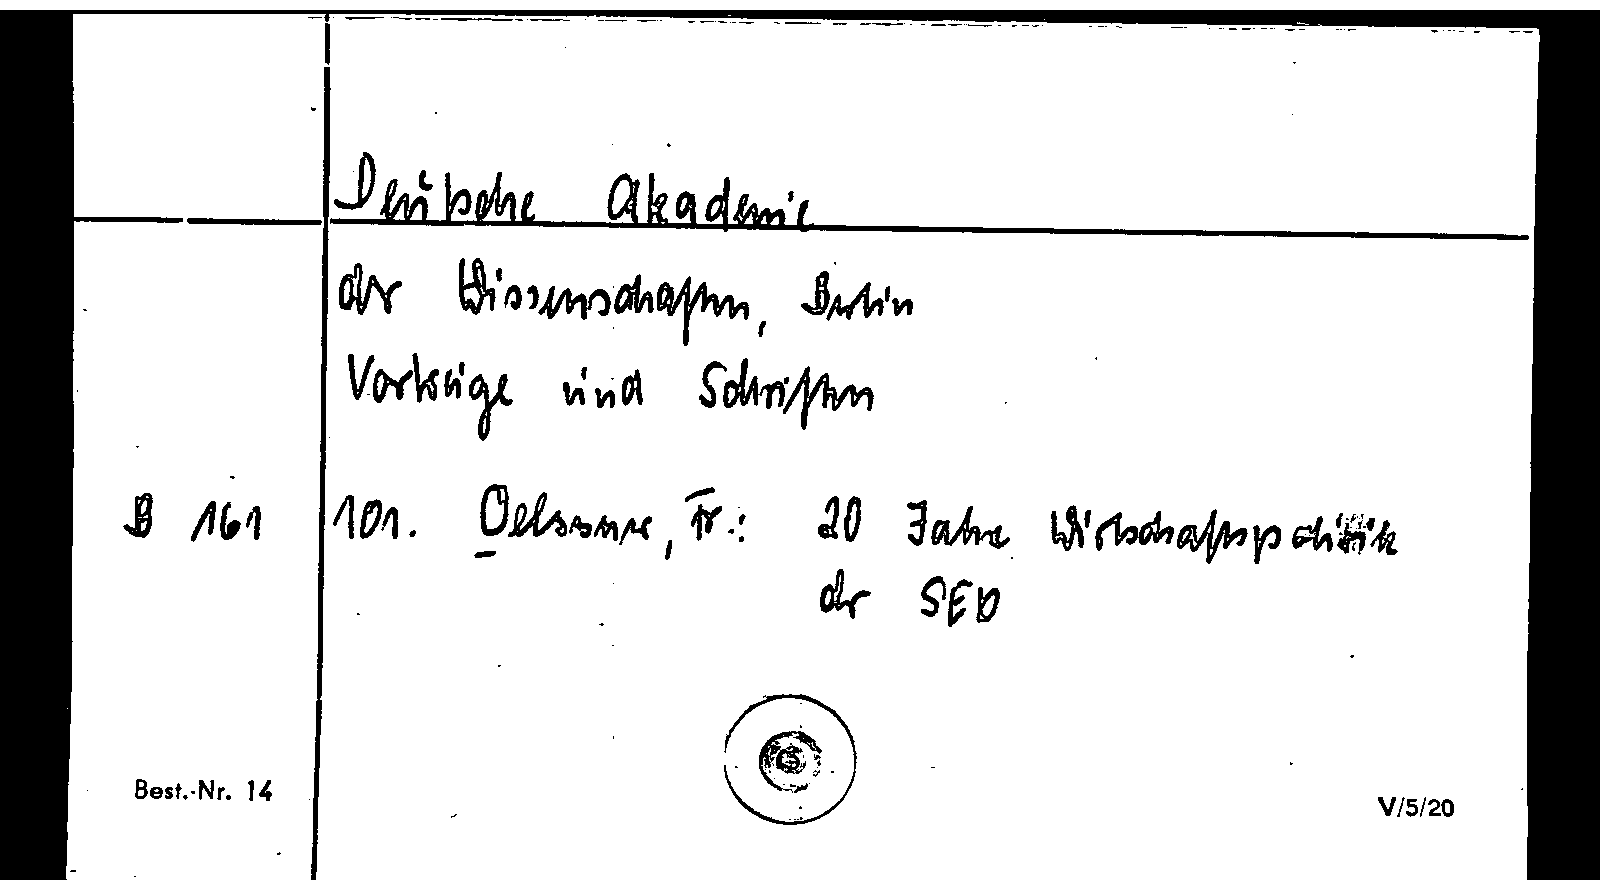 Deutsche Akademie
der Wissenschaften, Berlin
Vorträge und Schriften
B 161 101. Oelssner, Fr.: 20 Jahre Wirtschaftspolitik
der SED
Best.-Nr. 14 V/5/20